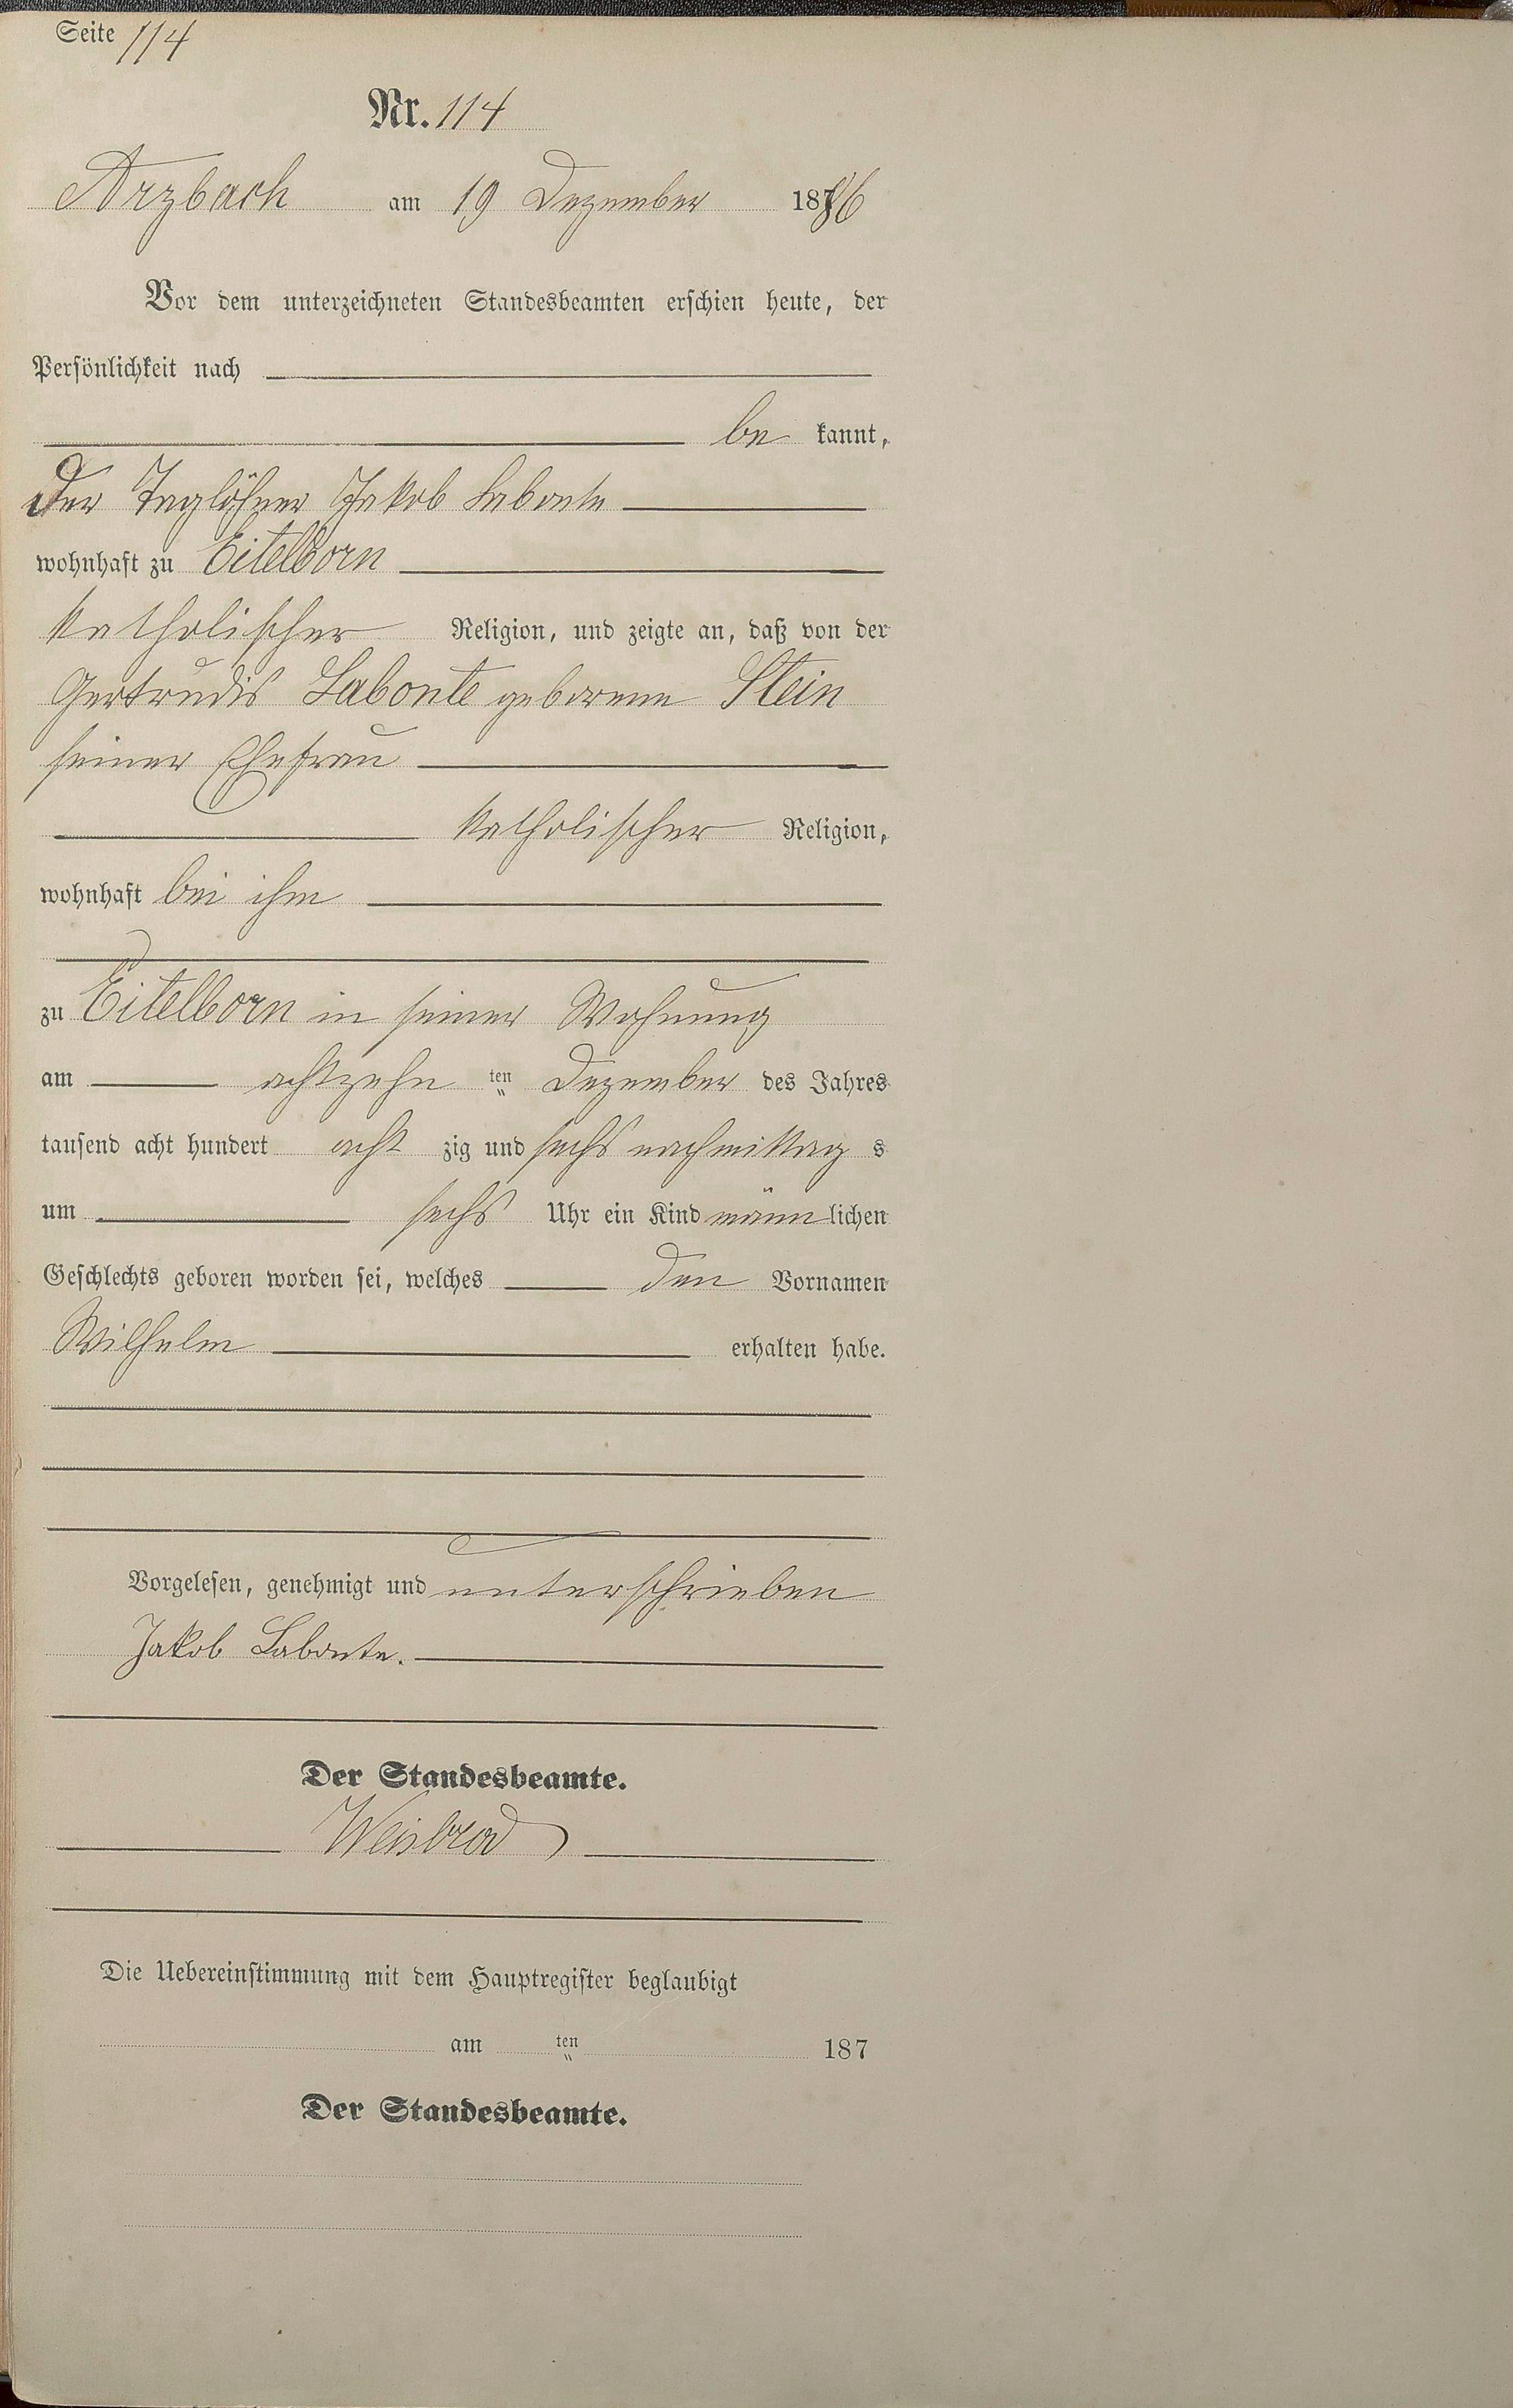 Seite 114
Nr. 114
Arzbach am 19 Dezember 1886
Vor dem unterzeichneten Standesbeamten erschien heute, der
Persönlichkeit nach
be kannt,
der Taglöhner Jakob Labonte
wohnhaft zu Eitelborn
katholischer Religion, und zeigte an, daß von der
Gertrudis Labonte geborene Stein
seiner Ehefrau
katholischer Religion,
wohnhaft bei ihm
zu Eitelborn in seiner Wohnung
am achtzehn ten Dezember des Jahres
tausend acht hundert acht zig und sechs nachmittag s
um sechs Uhr ein Kind männlichen
Geschlechts geboren worden sei, welches den Vornamen
Wilhelm erhalten habe.
Vorgelesen, genehmigt und unterschrieben
Jakob Labonte.
Der Standesbeamte.
Weisbrod
Die Uebereinstimmung mit dem Hauptregister beglaubigt
am ten 187
Der Standesbeamte.